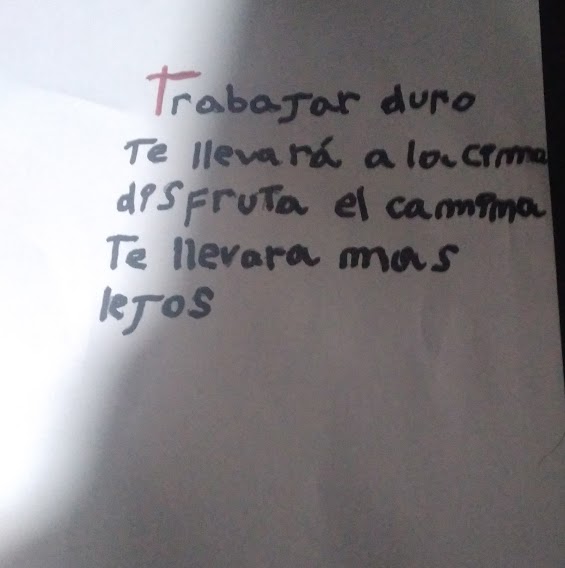 Trabajar duro
Te llevará a la cima
disfruta el camina
Te llevara mas
lejos